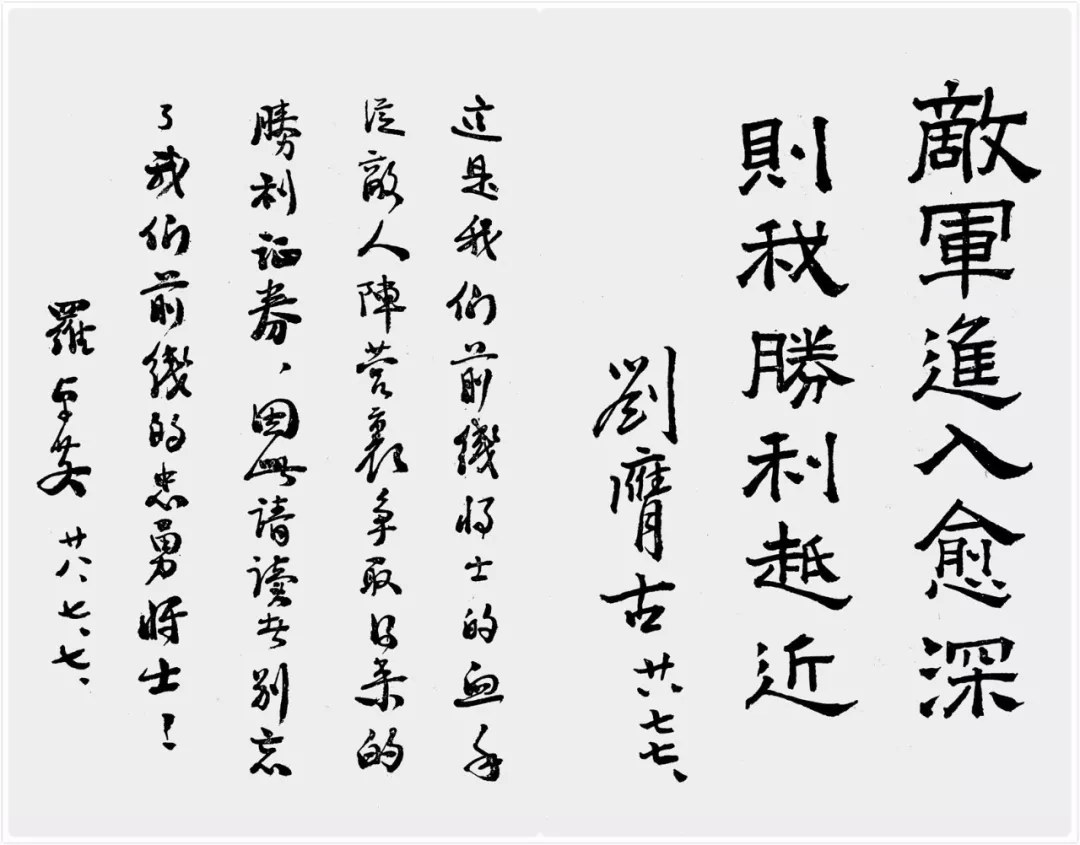 敵軍進入愈深
則我勝利越近
劉膺古 廿八、七七、
這是我們前綫將士的血手
從敵人陣营裏争取得来的
勝利証券、因此請讀者別忘
了我們前綫的忠勇將士！
羅卓英 廿八、七、七、